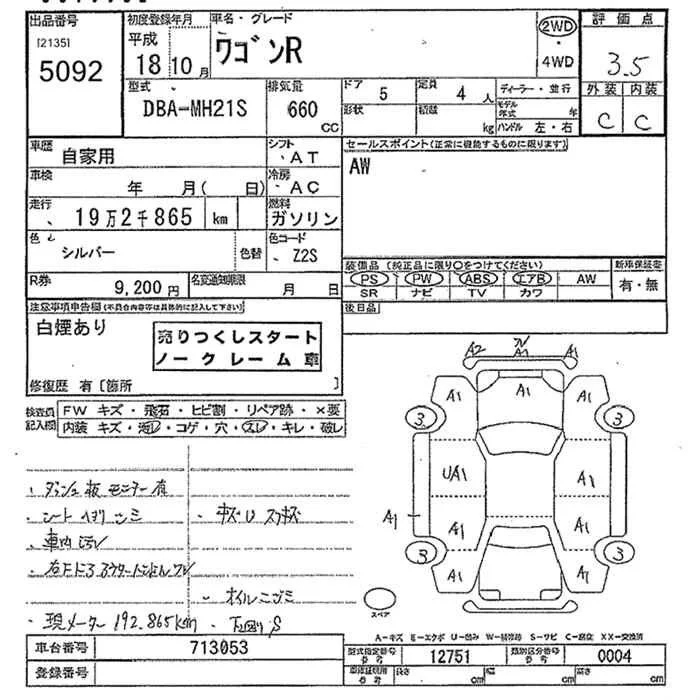 出品番号
[2135]
5092
初度登録年月
平成
18 10月
車名・グレード
ワゴンR
2WD
・
4WD
評価点
3.5
外装 内装
C C
型式
DBA-MH21S
排気量
660
CC
ドア
5
形状
定員
4 人
積載
kg
ディーラー・並行
モデル年式 年
ハンドル 左・右
車歴
自家用
シフト
AT
セールスポイント(正常に機能するものに限ります)
AW
車検
年 月( 日)
冷房
AC
走行
19万2千865 km
燃料
ガソリン
色
シルバー
色替
色コード
Z2S
装備品 (純正品に限り○をつけてください)
PS PW ABS エアB AW
SR ナビ TV カワ
新車保証書
有・無
R券
9,200 円
名変通知期限
月 日
後日品
注意事項申告欄(不具合内容等は具体的に記入して下さい)
白煙あり
売りつくしスタート
ノークレーム車
修復歴 有[箇所 ]
検査員記入欄
FW キズ・飛石・ヒビ割・リペア跡・×要
内装 キズ・汚レ・コゲ・穴・スレ・キレ・破レ
ダッシュ板 モニター有
車内 汚レ
キズU スリキズ
オイルニジミ
現メーター 192.865km
下回り S
A2 A1 A1
A1 A1 A1
3 3
UA1 A1
A1 A1 A1
3 3
A1 A1
スペア
A-キズ E-エクボ U-凹み W-補修跡 S-サビ C-腐食 XX-交換済
車台番号
713053
型式指定番号
12751
類別区分番号
0004
登録番号
長さ cm
幅 cm
高さ cm